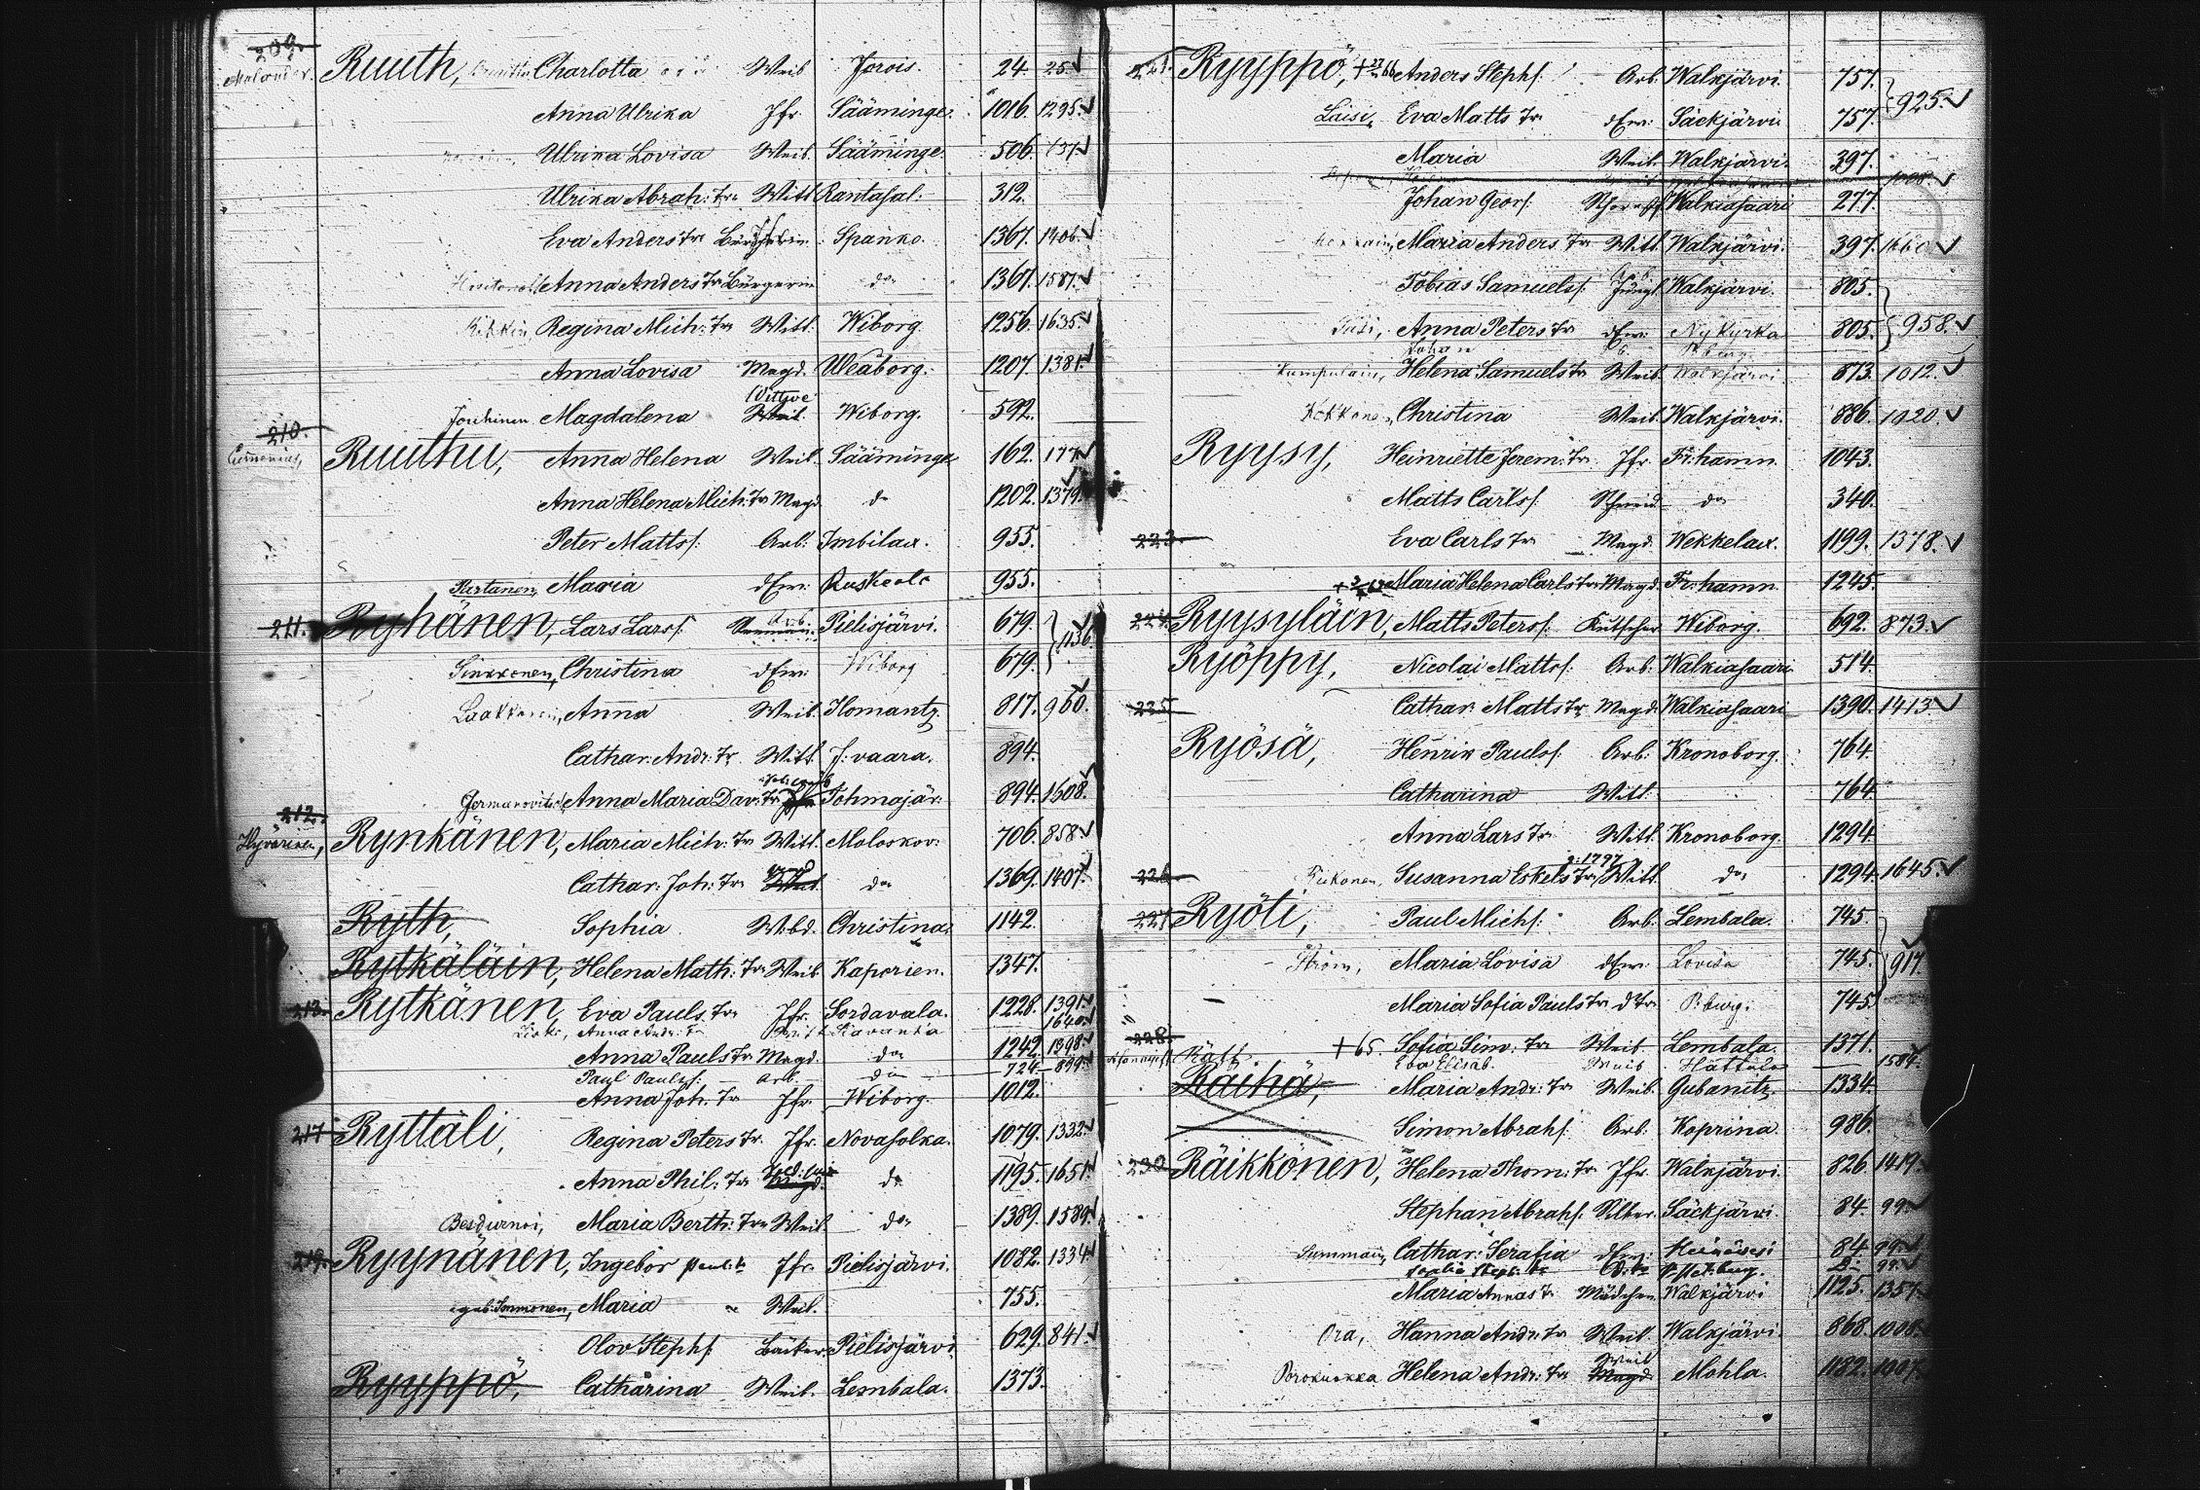 209.
Ruuth, Charlotta Weib Jorois. 24. 25.
Anna Ulrika Jfr. Sääminge. 1016. 1295.
Ulrika Lovisa Weib. Sääminge. 506. 657.
Ulrika Abrah: Tr. Witt. Rantasal: 312.
Eva Anders Tr Spanko. 1367. 1406.
Anna Anders Tr Bürgerin do 1367. 1587.
Regina Mich: Tr Witt. Wiborg. 1256. 1635.
Anna Lovisa Magd. Uleåborg. 1207. 1381.
Wittwe
Jouhinen Magdalena Weib. Wiborg. 592.
210.
Ruuthu, Anna Helena Weib. Sääminge 162. 177.
Anna Helena Mich: Tr Magd. do 1202. 1379.
Peter Mattss. Arb. Imbilax. 955.
Partanen, Maria dEw: Ruskeala 955.
211. Ryhänen, Lars Larss. Arb. Pielisjärvi. 679. 1136.
Sinkkonen, Christina dEw: Wiborg 679.
Laakkonen, Anna Weib. Ilomantz. 817. 960.
Cathar: Andr: Tr Witt. J:vaara. 894.
Germanovitsch Anna Maria Dav: Tr Tohmajär: 894. 1608.
212.
Hyvärinen, Rynkänen, Maria Mich: Tr Witt. Moloskov: 706. 858.
Cathar: Joh: Tr do 1369. 1407.
Ryth, Sophia Wbd. Christina. 1142.
Rytkäläin, Helena Math: Tr Weib. Kaporien. 1347.
213. Rytkänen, Eva Pauls Tr Jfr. Sordavala. 1228. 1391.
Anna Andr: Tr 1640.
Anna Pauls Tr Magd. do 1242. 1398.
Paul Paulss. Arb. do 724. 899.
Anna Joh. Tr Jfr. Wiborg. 1012.
217 Ryttäli, Regina Peters Tr. Jfr. Novasolka. 1079. 1332.
Anna Phil: Tr do 1195. 1651.
Besdurnoi, Maria Berth: Tr Weib do 1389. 1589.
219. Ryynänen, Ingebor Paul: tr Jfr. Pielisjärvi. 1082. 1334.
geb: Immonen, Maria Weib. 755.
Olov Stephs. Bäcker. Pielisjärvi 629. 841.
Ryyppö, Catharina Weib. Lembala. 1373.
221. Ryyppö, Anders Stephs. Arb. Walkjärvi. 757. 925.
Laisi, Eva Matts Tr dEw: Säckjärvi 757.
Maria Weib. Walkjärvi. 397.
1008.
Johan Geors. Walkiasaari 277.
Maria Anders Tr Witt. Walkjärvi. 397. 1660
Arb.
Tobias Samuelss. Jüngl. Walkjärvi. 805. 958.
Anna Peters Tr dEw: Nykyrka 805.
Johan
Kumpulain, Helena Samuels Tr Weib. Walkjärvi 873. 1012.
Kokkonen, Christina Weib. Walkjärvi. 886. 1020.
Ryysy, Heinriette Jerem: Tr. Jfr. Fr:hamn. 1043.
Matts Carlss. Schmied do 340.
223. Eva Carls Tr Magd. Wekkelax. 1199. 1378.
Maria Helena Carls Tr Magd. Fr:hamn. 1245.
224. Ryysyläin, Matts Peterss. Kutscher Wiborg. 692. 873.
Ryöppy, Nicolai Mattss. Arb. Walkiasaari 514.
225. Cathar: Matts Tr Magd. Walkiasaari 1390. 1413.
Ryösä, Henrik Paulss. Arb. Kronoborg. 764.
Catharina Witt. 764.
Anna Lars Tr Witt. Kronoborg. 1294.
g: 1797
226. Susanna Eskels Tr Witt. do 1294. 1645.
227. Ryöti, Paul Michs. Arb. Lembala. 745. 917.
Ström, Maria Lovisa dEw: Lovisa 745.
Maria Sofia Pauls Tr d Tr P:burg. 745.
228. + 65. Sofia Sim: Tr Weib. Lembala. 1371.
Rätt Eva Elisab. Weib Hattula 1584.
Räihä, Maria Andr: Tr Weib. Gubanitz. 1334.
Simon Abrahs. Arb. Koprina. 986.
230. Räikkönen, Helena Thom: Tr Jfr. Walkjärvi. 826. 1419.
Stephan Abrahs. Silber. Säckjärvi. 84. 99.
Summain, Cathar: Serafia dEw: 84. 99.
P:burg. 99.
Maria Annas Tr Mädchen Walkjärvi 1125. 1357.
Ora, Hanna Andr: Tr Weib. Walkjärvi. 868. 1008.
Weib
Porokuokka Helena Andr: Tr Magd. Mohla. 1182. 1007.